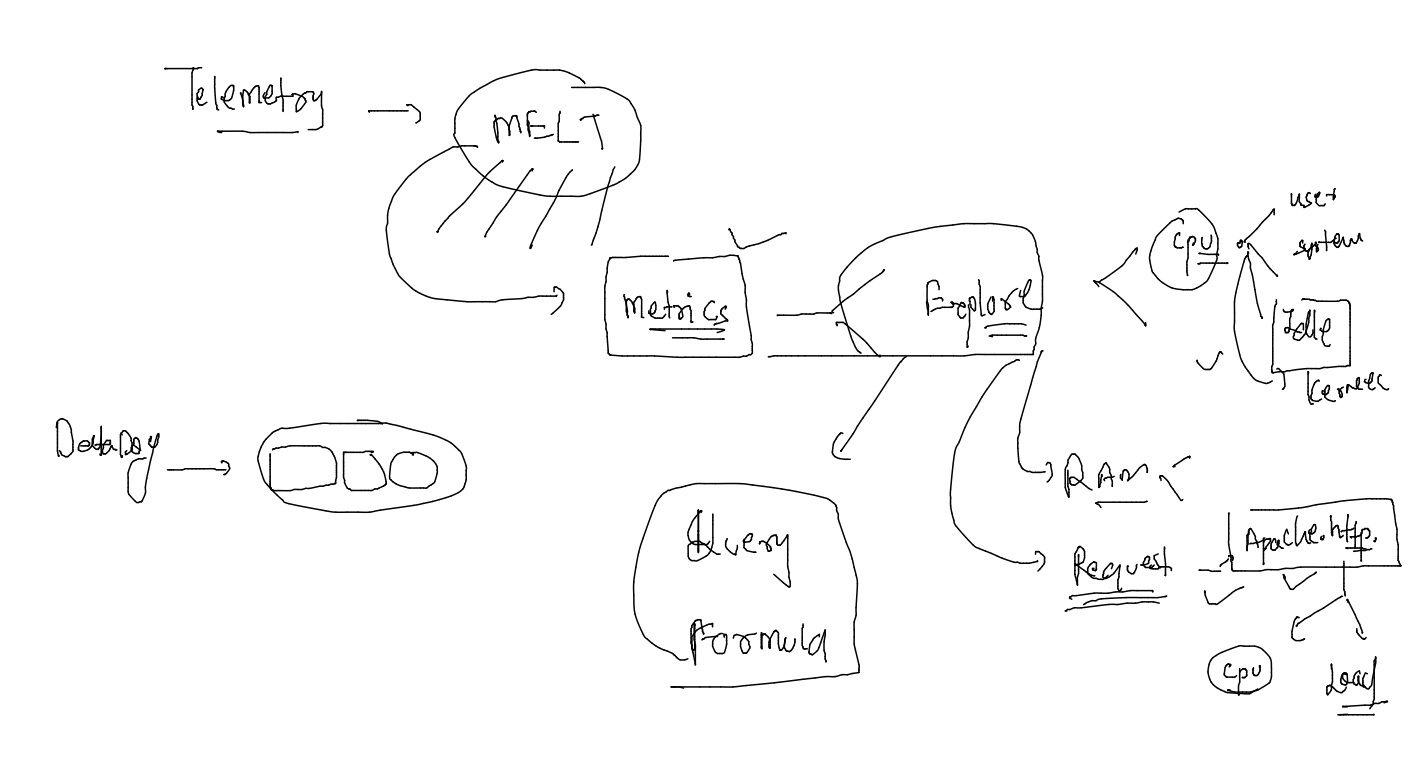 Telemetry
MELT
Metrics
Explore
cpu
user
system
Idle
kernel
DataDog
RAM
Query
Formula
Request
Apache.http.
cpu
Load